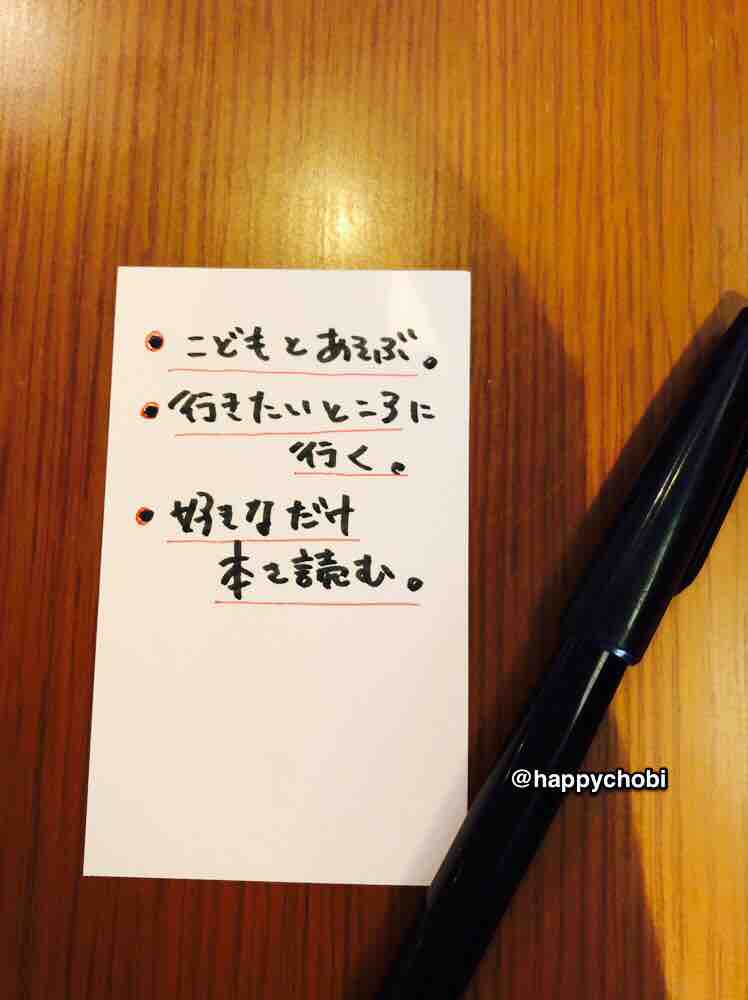 • こどもとあそぶ。
• 行きたいところに
行く。
• 好きなだけ
本を読む。
@happychobi